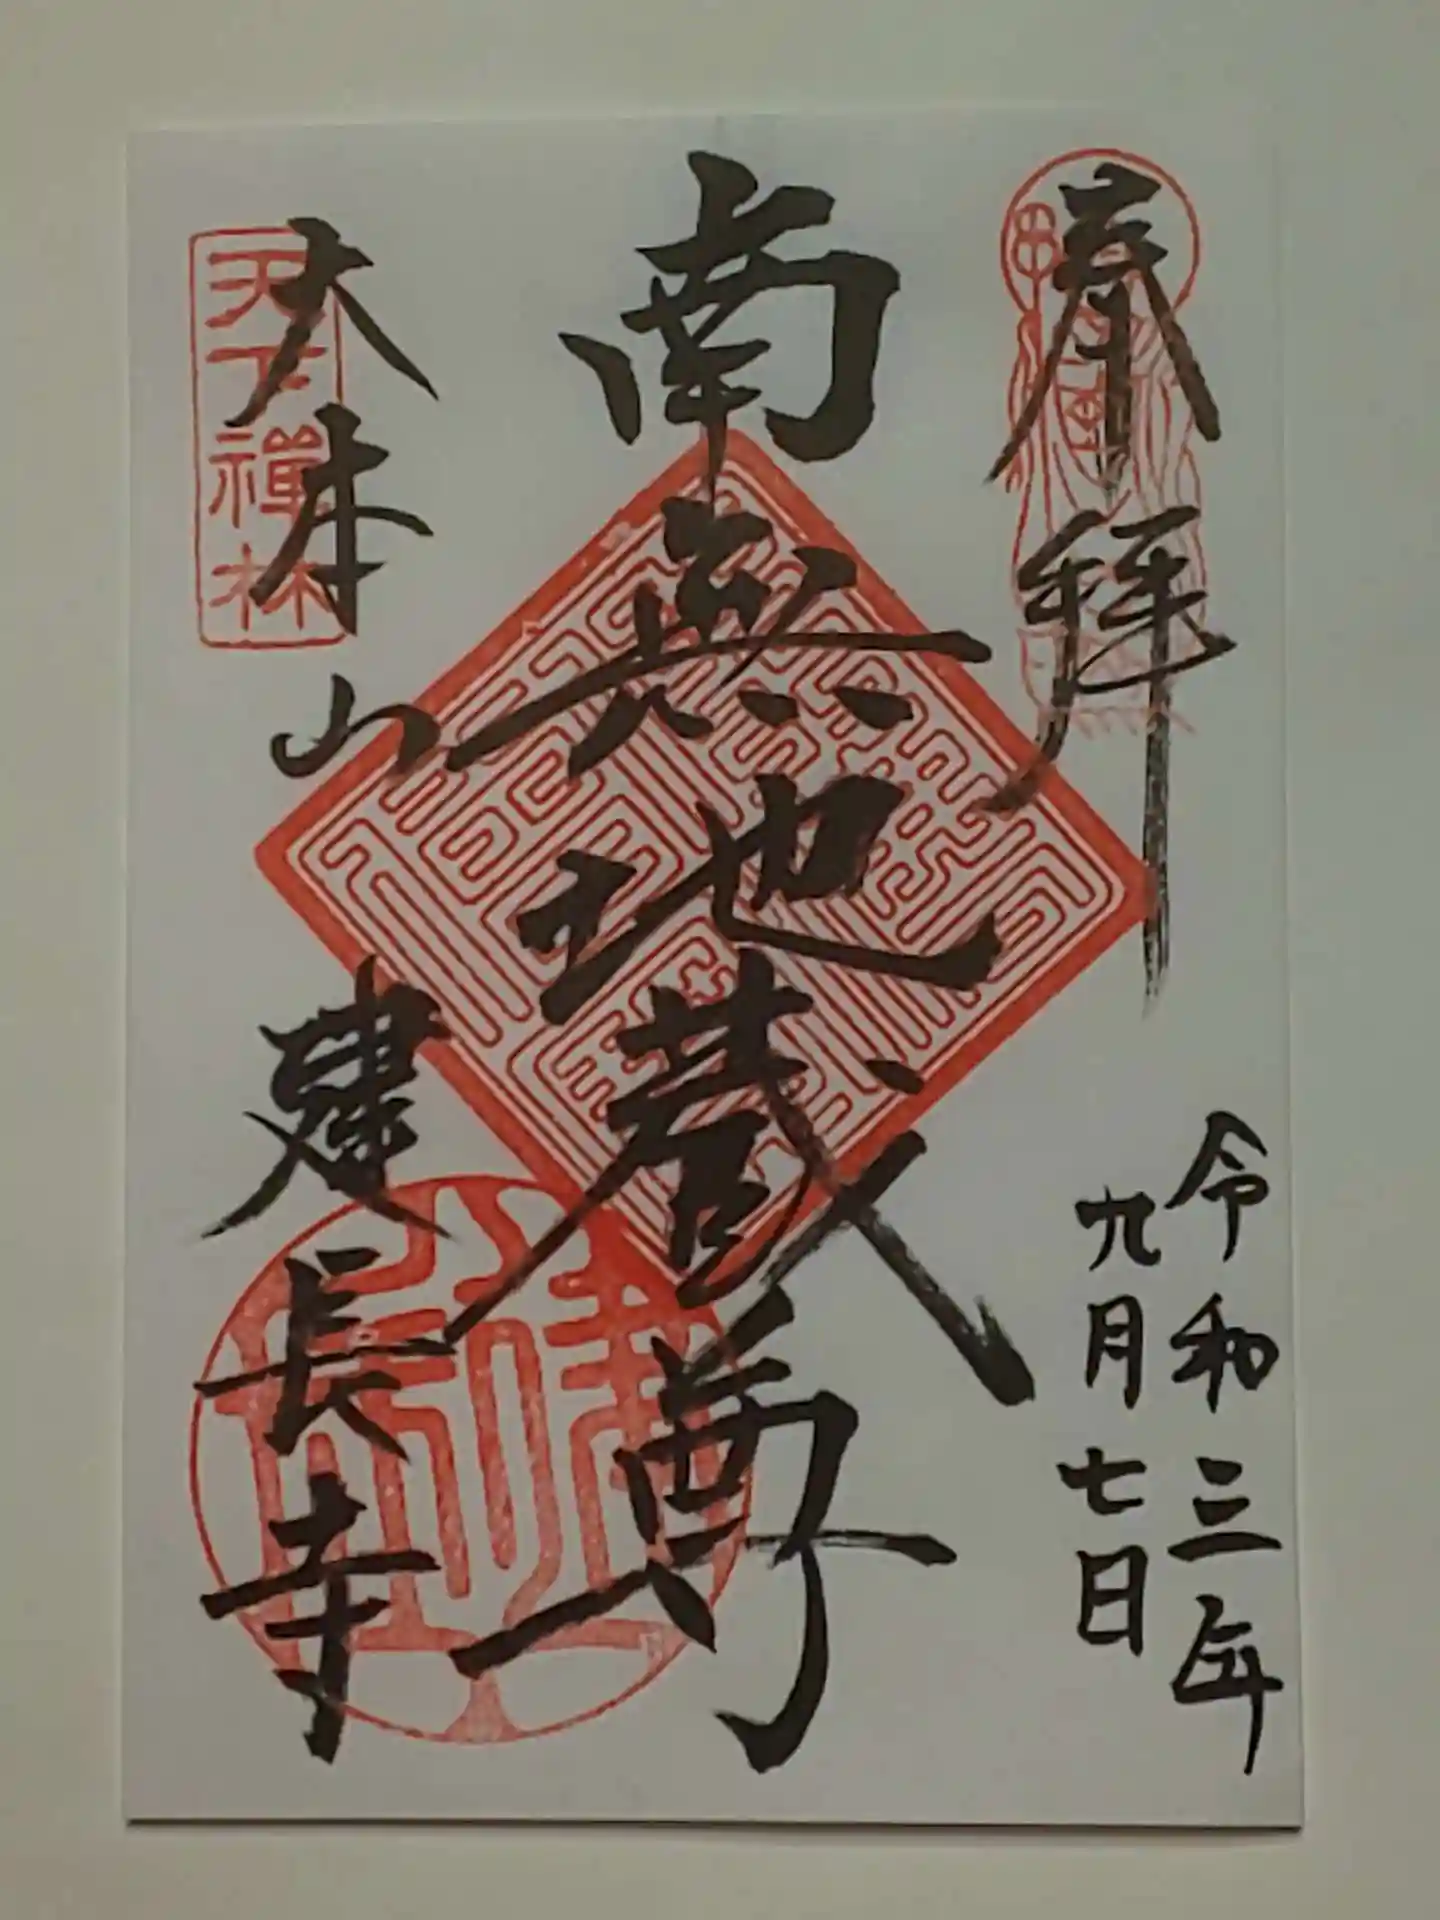 奉拝
令和三年
九月七日
南無地蔵尊
大本山 建長寺
天下禅林